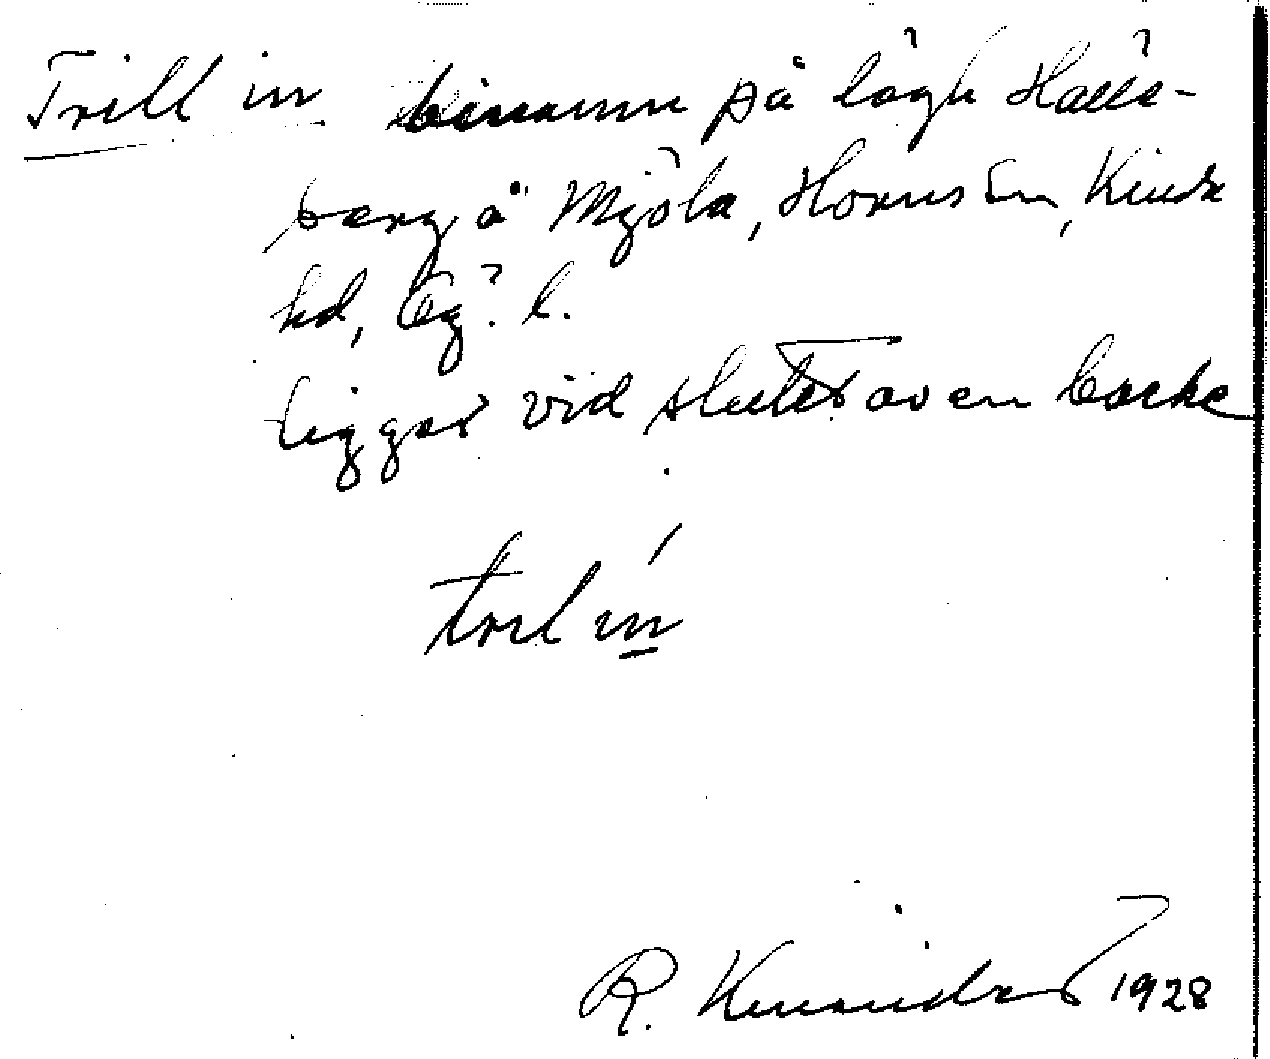 Trill in binamn på lägh Hälls-
berg å Mjöla, Horns sn, Kinds
hd, Ög. l.
Ligger vid slutet av en backe
tril ín
R. 1928